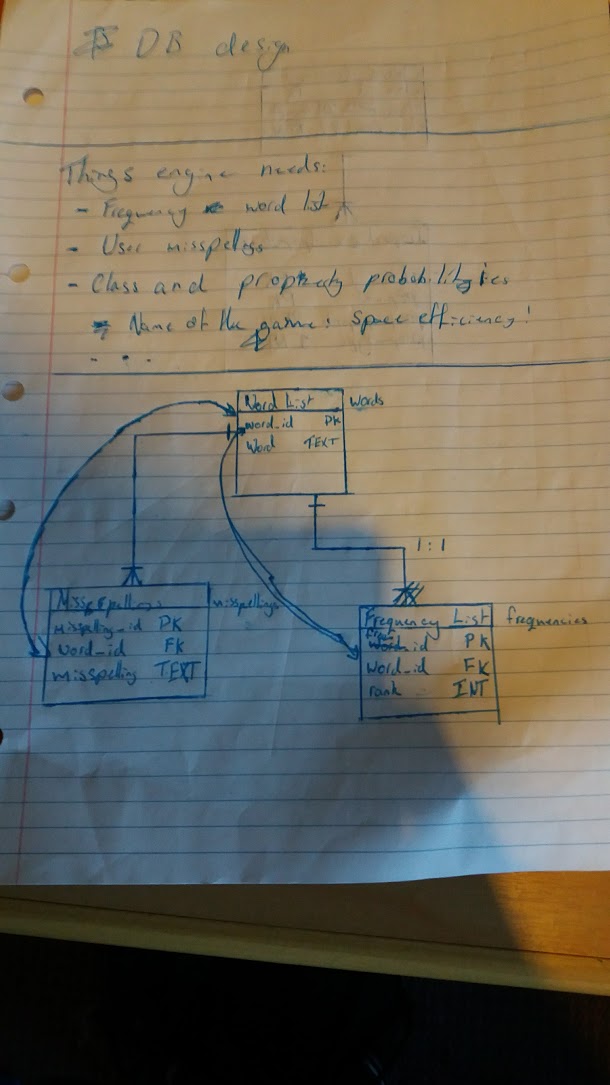 DB design
Things engine needs:
- Frequency word list
- User misspellings
- Class and property probabilities
Name of the game: space efficiency!
- . . .
Word List words
word_id PK
Word TEXT
1:1
Misspellings misspellings
misspelling_id PK
word_id FK
misspelling TEXT
Frequency List frequencies
PK
word_id FK
rank INT